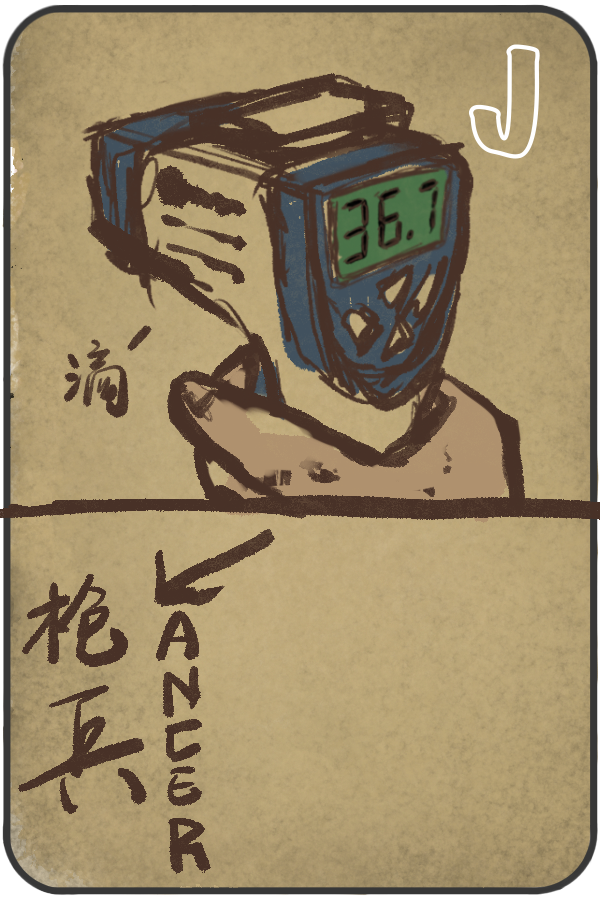 J
36.7
滴
枪兵
LANCER